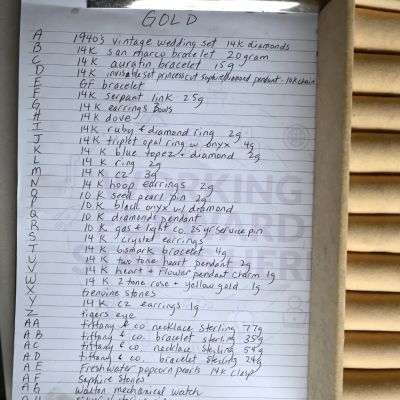 GOLD
A 1940's vintage wedding set 14K diamonds
B 14K san marco bracelet 20 gram
C 14K auratin bracelet 15g
D 14K invisable set princess cut saphire/diamond pendant - 10K chain
E GF bracelet
F 14K serpant link 25g
G 14K earrings Bows
H 14K dove
I 14K ruby & diamond ring 2g
J 14K triplet opal ring w onyx 4g
K 14K blue topez & diamond 2g
L 14K ring 2g
M 14K CZ 3g
N 14K hoop earrings 2g
O 10K seed pearl pin 2g
P 10K black onyx w/ diamond
Q 10K diamonds pendant
R 10K gas & light co. 25 yr service pin
S 14K crystal earrings
T 14K bismark bracelet 4g
U 14K two tone heart pendant 2g
V 14K heart & flower pendant charm 1g
W 14K 2 tone rose & yellow gold 1g
X Genuine stones
Y 14K CZ earrings 1g
Z tigers eye
AA tiffany & co. necklace sterling 77g
AB tiffany & co. bracelet sterling 35g
AC tiffany & co. necklace sterling 54g
AD tiffany & co. bracelet sterling 24g
AE Freshwater popcorn pearls 14K clasp
AF Saphire Stones
AG Walton mechanical watch